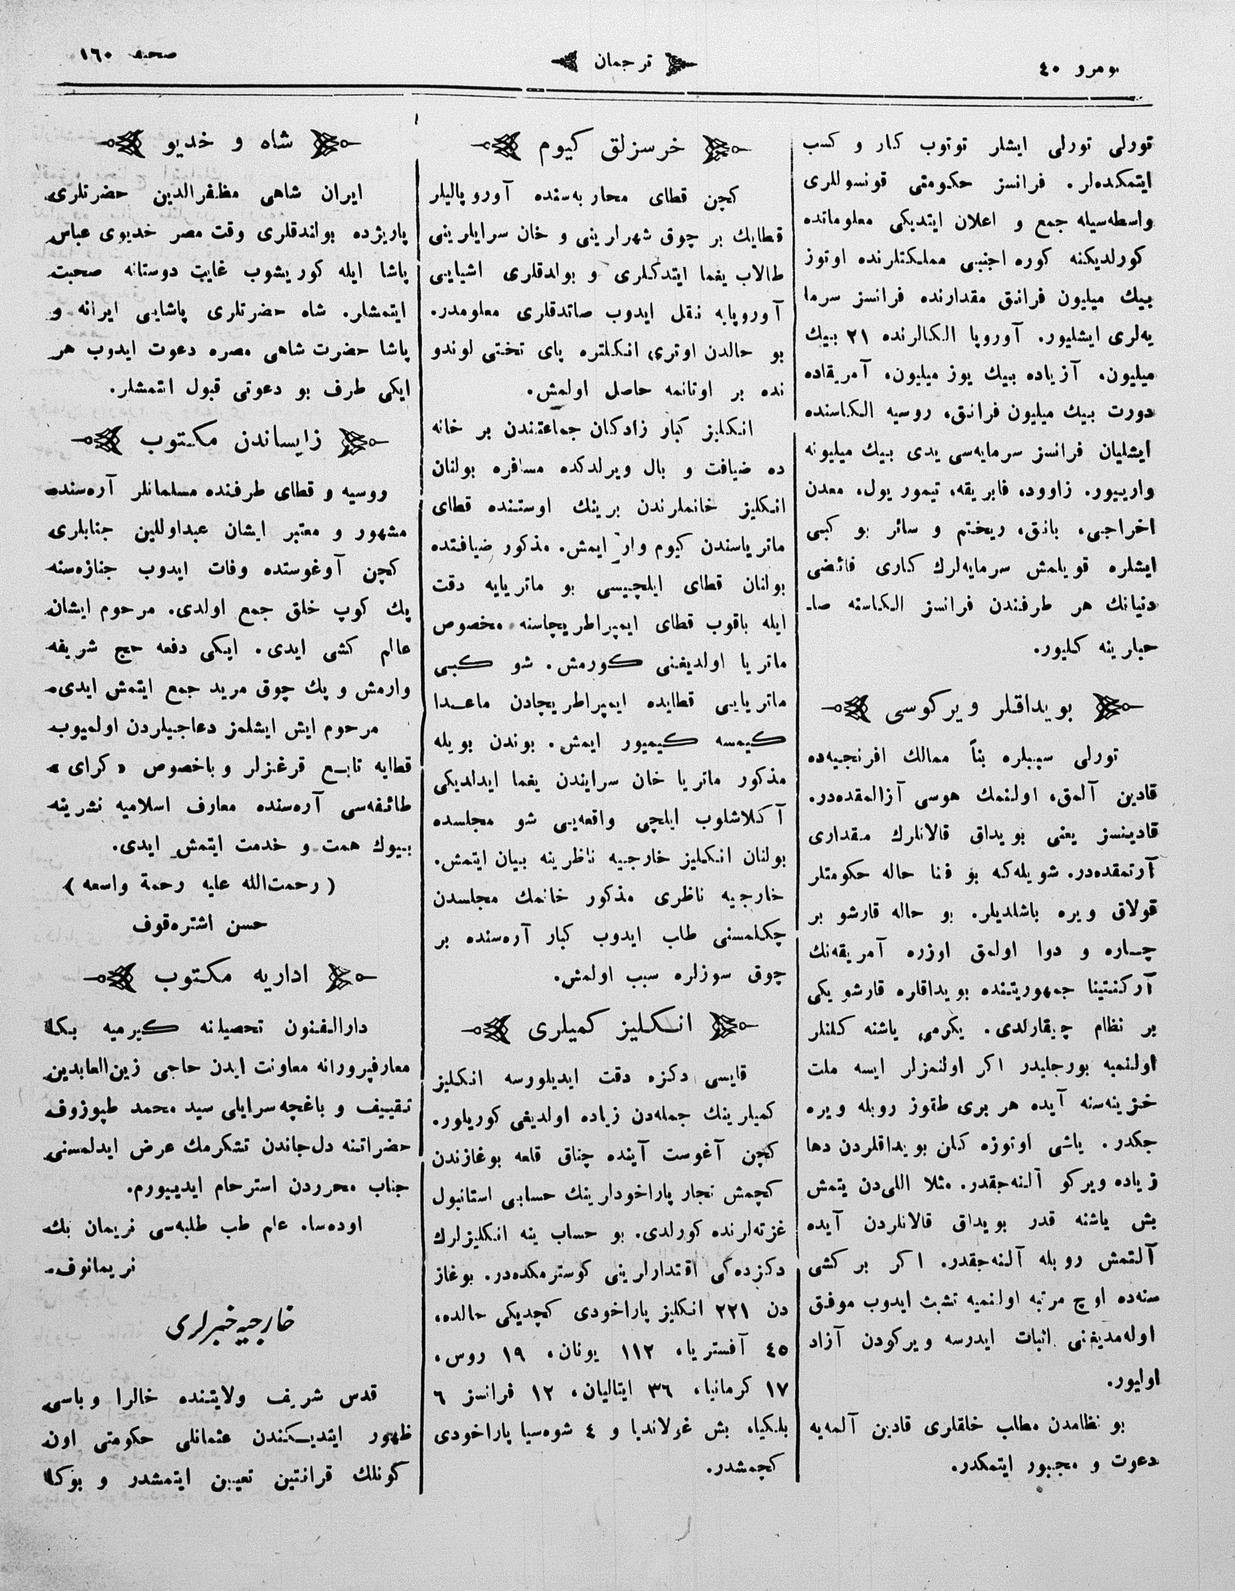 نومرو ٤٠
ترجمان
صحيفه ١٦٠
تورلى تورلى ايشلر توتوب كار و كسب
ايتمكده‌لر. فرانسز حكومتى قونسوللرى
واسطه‌سيله جمع و اعلان ايتديكى معلوماتده
كورلديكنه كوره اجنبى مملكتلرنده اوتوز
بيك ميليون فرانق مقدارنده فرانسز سرما
يه‌لرى ايشليور. آوروپا الكالرنده ٢١ بيك
ميليون، آزياده بيك يوز ميليون، آمريقاده
دورت بيك ميليون فرانق، روسيه الكاسنده
ايشليان فرانسز سرمايه‌سى يدى بيك ميليونه
وارييور. زاوود، فابريقه، تيمور يول، معدن
اخراجى، بانق، ريختم و سائر بو كبى
ايشلره قويلمش سرمايه‌لرك كارى فائضى
دنيانك هر طرفندن فرانسز الكاسنه صا۔
حبارينه كليور.
بويداقلر ويركوسى
تورلى سببلره بناً ممالك افرنجيه‌ده
قادين آلمق، اولنمك هوسى آزالمقده‌در.
قادينسز يعنى بويداق قالانلرك مقدارى
آرتمقده‌در. شويله‌كه بو فنا حاله حكومتلر
قولاق ويره باشلديلر. بو حاله قارشو بر
چاره و دوا اولمق اوزره آمريقه‌نك
آركنتينا جمهوريتنده بويداقلره قارشو يكى
بر نظام چيقارلدى. يكرمى ياشنه كلنلر
اولنميه بورجليدر اكر اولنمزلر ايسه ملت
خزينه‌سنه آيده هر برى طقوز روبله ويره
جكدر. ياشى اوتوزه كلن بويداقلردن دها
زياده ويركو آلنه‌جقدر. مثلا اللى‌دن يتمش
بش ياشنه قدر بويداق قالانلردن آيده
آلتمش روبله آلنه‌جقدر. اكر بر كشى
سنه‌ده اوچ مرتبه اولنميه تشبث ايدوب موفق
اوله‌مديغنى اثبات ايدرسه ويركودن آزاد
اوليور.
بو نظامدن مطلب خلقلرى قادين آلمه‌يه
دعوت و مجبور ايتمكدر.
خرسزلق كيوم
كچن قطاى محاربه‌سنده آوروپاليلر
قطايك بر چوق شهرلرينى و خان سرايلرينى
طالاب يغما ايتدكلرى و بولدقلرى اشيايى
آوروپايه نقل ايدوب صاتدقلرى معلومدر.
بو حالدن اوترى انكلتره پاى تختى لوندو
نده بر اوتانمه حاصل اولمش.
انكليز كبار زادكان جماعتندن بر خانه
ده ضيافت و بال ويرلدكده مسافره بولنان
انكليز خانملرندن برينك اوستنده قطاى
ماترياسندن كيوم وار ايمش. مذكور ضيافتده
بولنان قطاى ايلچيسى بو ماتريايه دقت
ايله باقوب قطاى ايمپراطريچاسنه مخصوص
ماتريا اولديغنى كورمش. شو كبى
ماتريايى قطايده ايمپراطريچادن ماعدا
كيمسه كيميور ايمش. بوندن بويله
مذكور ماتريا خان سرايندن يغما ايدلديكى
آكلاشلوب ايلچى واقعه‌يى شو مجلسده
بولنان انكليز خارجيه ناظرينه بيان ايتمش.
خارجيه ناظرى مذكور خانمك مجلسدن
چكلمسنى طلب ايدوب كبار آره‌سنده بر
چوق سوزلره سبب اولمش.
انكليز كميلرى
قايسى دكزه دقت ايديلورسه انكليز
كميلرينك جمله‌دن زياده اولديغى كوريلور.
كچن آغوست آينده چناق قلعه بوغازندن
كچمش تجار پاراخودلرينك حسابى استانبول
غزته‌لرنده كورلدى. بو حساب ينه انكليزلرك
دكزده‌كى اقتدارلرينى كوسترمكده‌در. بوغاز
دن ٢٢١ انكليز پاراخودى كچديكى حالده،
٤٥ آفستريا، ١١٢ يونان، ١٩ روس،
١٧ كرمانيا، ٣٦ ايتاليان، ١٢ فرانسز ٦
بلكيا، بش غولانديا و ٤ شوه‌سيا پاراخودى
كچمشدر.
شاه و خديو
ايران شاهى مظفرالدين حضرتلرى
پاريژده بولندقلرى وقت مصر خديوى عباس
پاشا ايله كوريشوب غايت دوستانه صحبت
ايتمشلر. شاه حضرتلرى پاشايى ايرانه و
پاشا حضرت شاهى مصره دعوت ايدوب هر
ايكى طرف بو دعوتى قبول اتمشلر.
زايساندن مكتوب
روسيه و قطاى طرفنده مسلمانلر آره‌سنده
مشهور و معتبر ايشان عبداوللين جنابلرى
كچن آوغوستده وفات ايدوب جنازه‌سنه
پك كوپ خلق جمع اولدى. مرحوم ايشان
عالم كشى ايدى. ايكى دفعه حج شريفه
وارمش و پك چوق مريد جمع ايتمش ايدى.
مرحوم ايش ايشلمز دعاجيلردن اولميوب
قطايه تابع قرغزلر و باخصوص «كراى»
طائفه‌سى آره‌سنده معارف اسلاميه نشرينه
بيوك همت و خدمت ايتمش ايدى.
(رحمت‌الله عليه رحمة واسعه)
حسن اشتره‌قوف
اداريه مكتوب
دارالفنون تحصيلنه كيرميه بكا
معارفپرورانه معاونت ايدن حاجى زين‌العابدين
تقييف و باغچه‌سرايلى سيد محمد طپوزوف
حضراتنه دل‌جاندن تشكرمك عرض ايدلمسنى
جناب محرردن استرحام ايدييورم.
اوده‌سا. علم طب طلبه‌سى نريمان بك
نريمانوف.
خارجيه خبرلرى
قدس شريف ولايتنده خالرا وباسى
ظهور ايتديكندن عثمانلى حكومتى اون
كونلك قرانتين تعيين ايتمشدر و بوكا